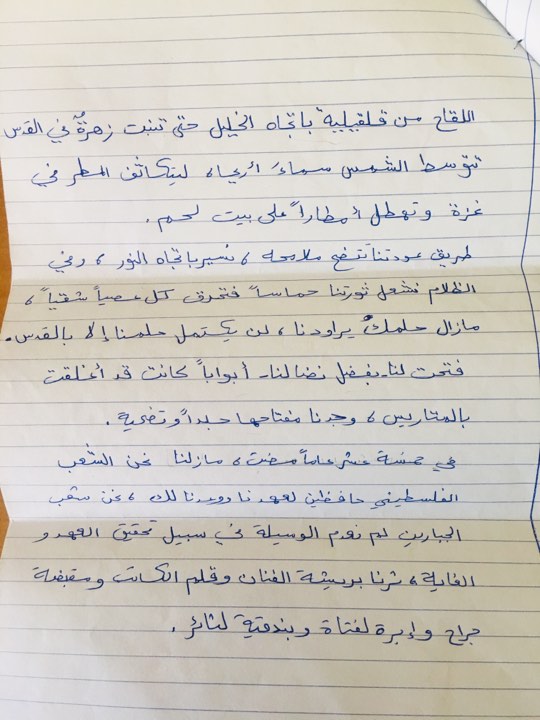 اللقاح من قلقيلية باتجاه الخليل حتى تنبت زهرةٌ في القدس
تتوسط الشمس سماءَ أريحا، ليتكاثف المطر في
غزة وتهطل أمطاراً على بيت لحم.
طريق عودتنا تتضح ملامحه، نسير باتجاه النور، وفي
الظلام نشعل ثورتنا حماساً فتحرق كل عصياً شقياً،
مازال حلمك يراودنا، لن يكتمل حلمنا إلا بالقدس.
فتحت لنا - بفضل نضالنا - أبواباً كانت قد أغلقت
بالمتاريس، وجدنا مفتاحها جلداً وتضحية.
هي خمسة عشر عاماً مضت، مازلنا نحن الشعب
الفلسطيني حافظين لعهدنا ووعدنا لك، نحن شعب
الجبارين لم نعدم الوسيلة في سبيل تحقيق العهد و
الغاية، ثرنا بريشة الفنان وقلم الكاتب ومقبضة
جراح وإبرة لفتاة وبندقية لثائر.